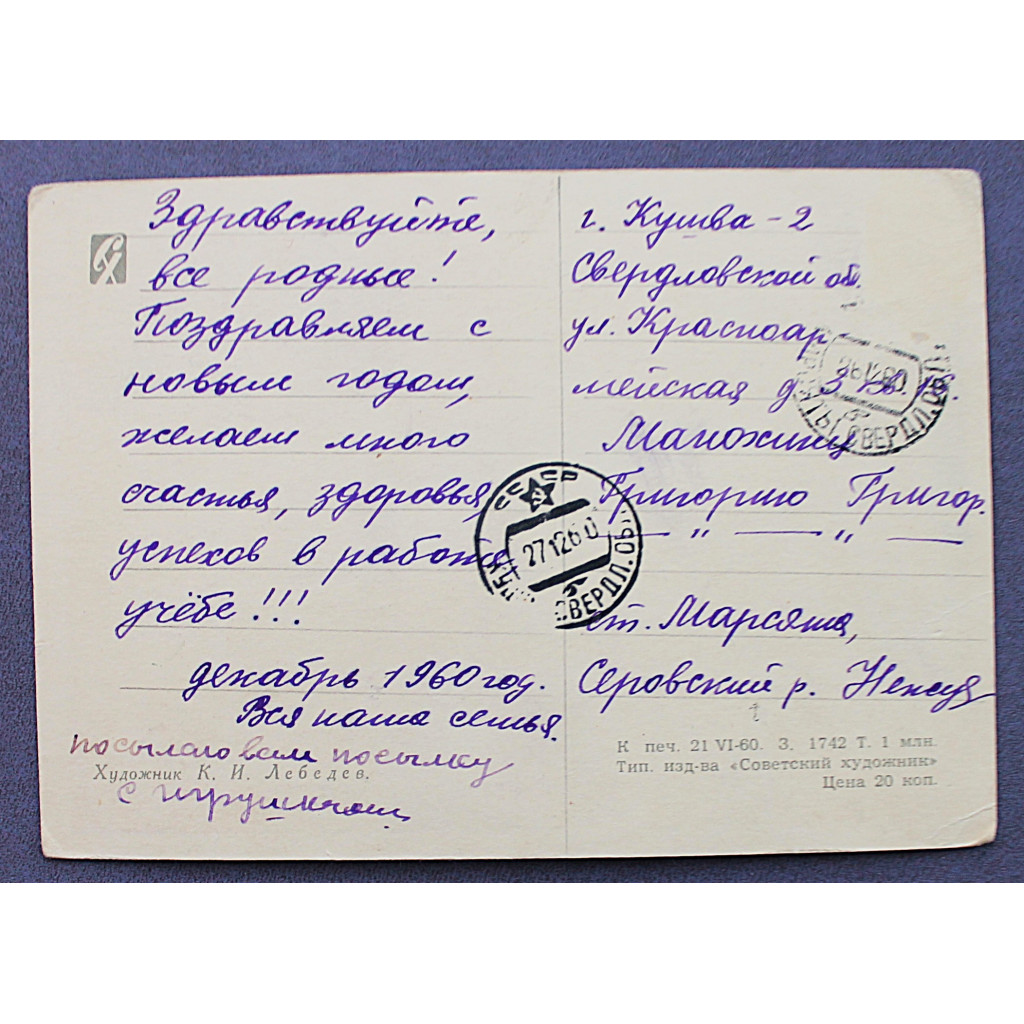 Здравствуйте,
все родные!
Поздравляем с
новым годом,
желаем много
счастья, здоровья,
успехов в работе,
учёбе!!!
декабрь 1960 год.
Вся наша семья.
посылаю вам посылку
Художник К. И. Лебедев.
с игрушками
г. Кушва-2
Свердловской об.
ул. Красноар-
мейская д. 3
Григорию Григор.
— " — " —
ст. Марсяты,
Серовский р.
СССР
271260
СВЕРДЛ. ОБ.
СВЕРДЛ. ОБЛ.
К печ. 21 VI-60. З. 1742 Т. 1 млн.
Тип. изд-ва «Советский художник»
Цена 20 коп.